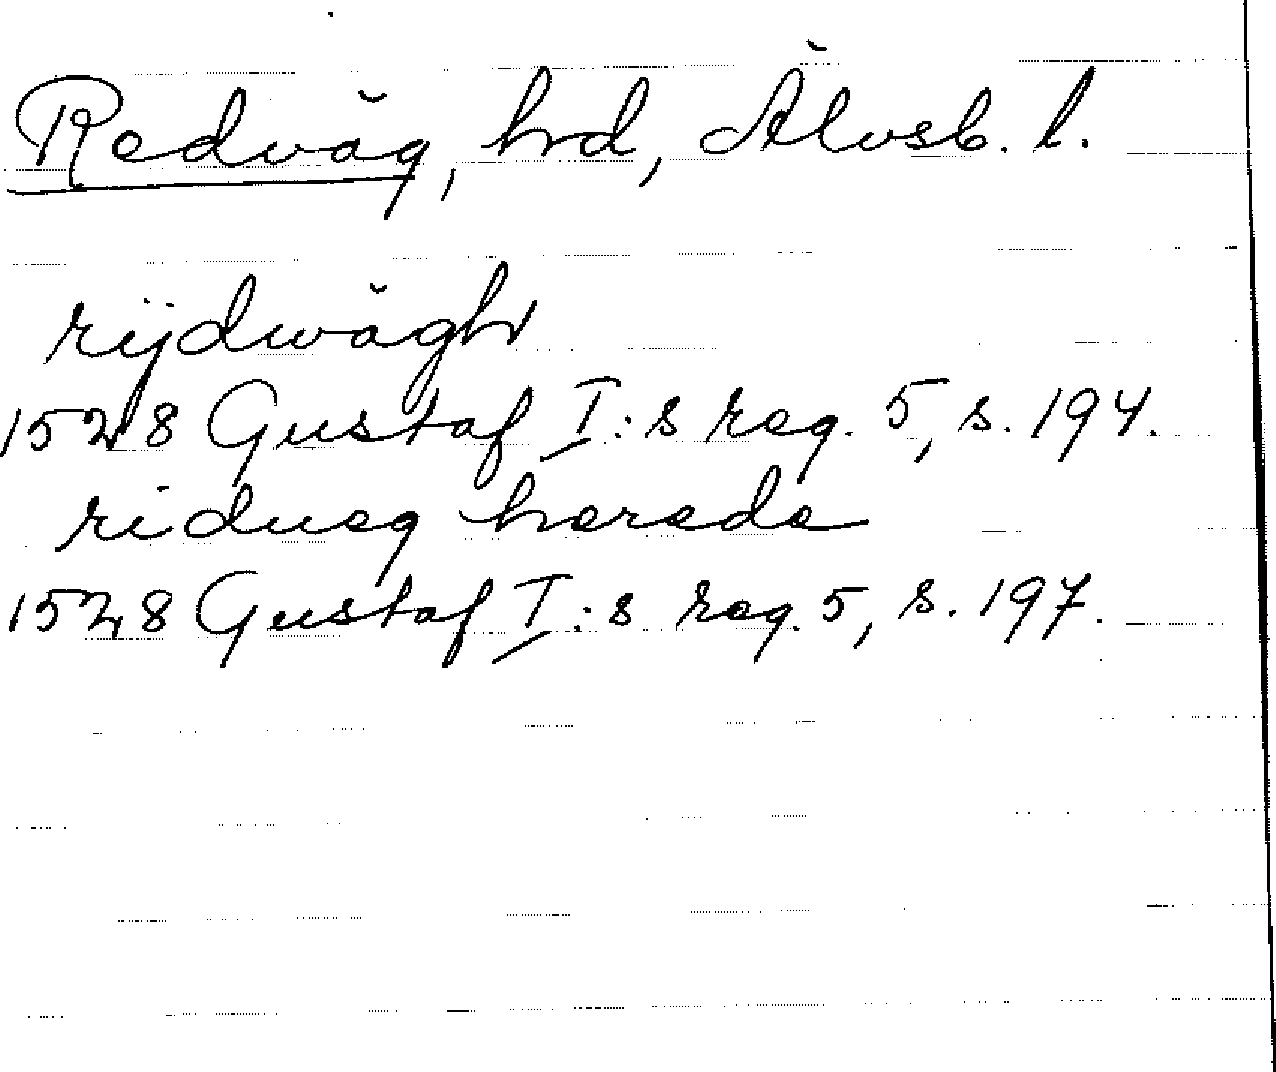 Redväg, hrd, Älvsb. l.
rijdwägh
1528 Gustaf I:s reg. 5, s. 194.
ridueg herede
1528 Gustaf I:s reg. 5, s. 197.